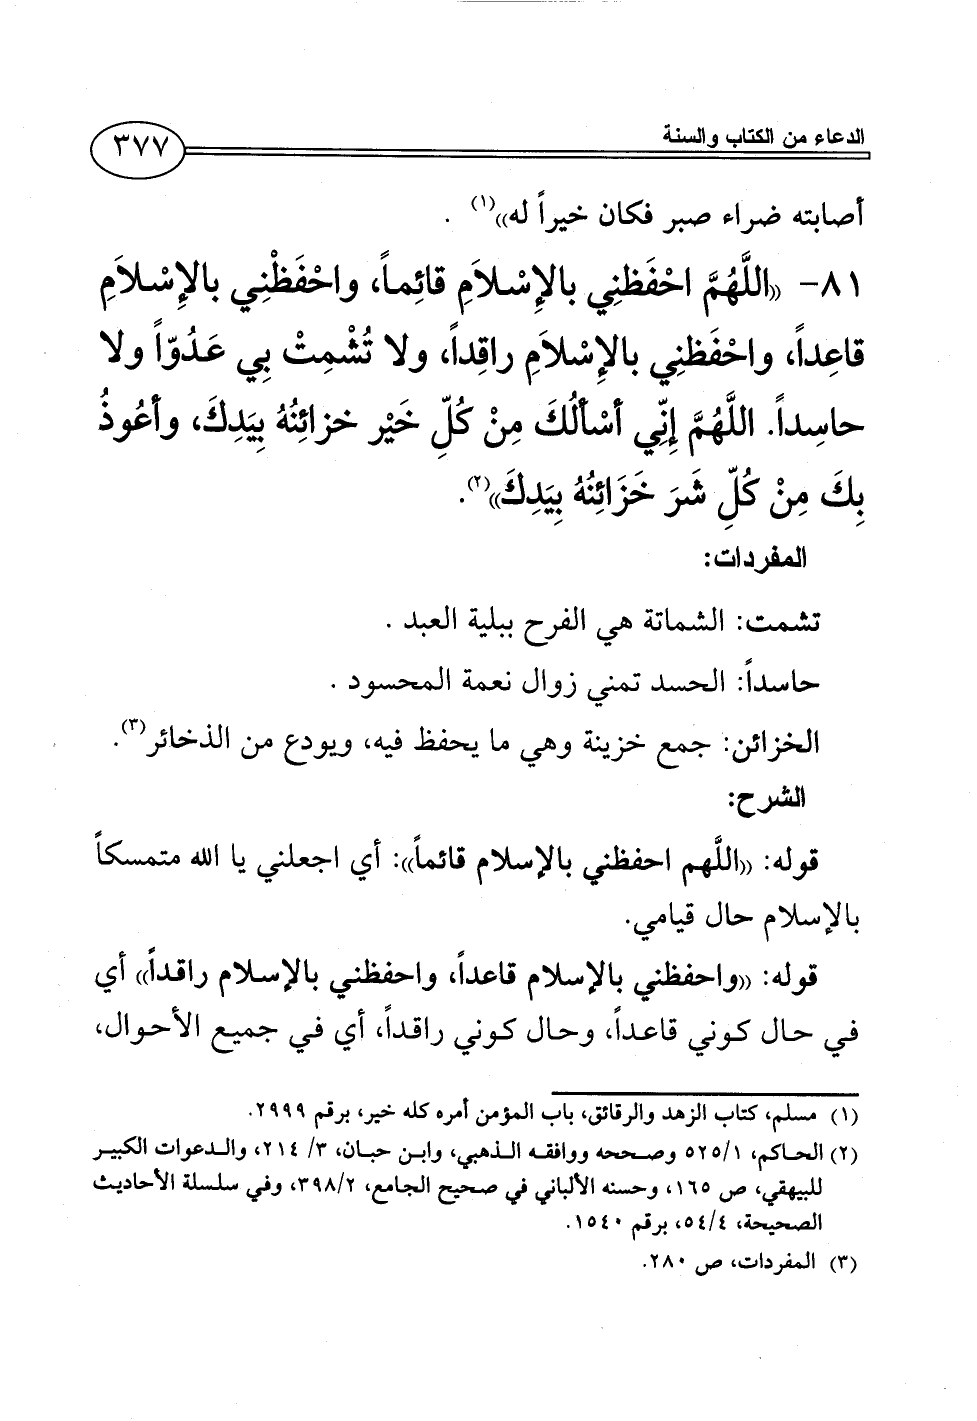 الدعاء من الكتاب والسنة
٣٧٧
أصابته ضراء صبر فكان خيراً له»(١) .
٨١- «اللَّهُمَّ احْفَظنِي بالإِسْلاَمِ قائِماً، واحْفَظْنِي بالإِسْلاَمِ
قاعِداً، واحْفَظنِي بالإِسْلاَمِ راقِداً، ولا تُشْمِتْ بِي عَدُوّاً ولا
حاسِداً. اللَّهُمَّ إِنِّي أسْألُكَ مِنْ كُلِّ خَيْر خزائِنُهُ بِيَدِكَ، وأعُوذُ
بِكَ مِنْ كُلِّ شَرَ خَزَائِنُهُ بِيَدِكَ»(٢).
المفردات:
تشمت: الشماتة هي الفرح ببلية العبد .
حاسداً: الحسد تمني زوال نعمة المحسود .
الخزائن: جمع خزينة وهي ما يحفظ فيه، ويودع من الذخائر(٣).
الشرح:
قوله: «اللَّهم احفظني بالإسلام قائماً»: أي اجعلني يا الله متمسكاً
بالإسلام حال قيامي.
قوله: «واحفظني بالإسلام قاعداً، واحفظني بالإسلام راقداً» أي
في حال كوني قاعداً، وحال كوني راقداً، أي في جميع الأحوال،
(١) مسلم، كتاب الزهد والرقائق، باب المؤمن أمره كله خير، برقم ٢٩٩٩.
(٢) الحاكم، ٥٢٥/١ وصححه ووافقه الذهبي، وابن حبان، ٣/ ٢١٤، والدعوات الكبير
للبيهقي، ص ١٦٥، وحسنه الألباني في صحيح الجامع، ٣٩٨/٢، وفي سلسلة الأحاديث
الصحيحة، ٥٤/٤، برقم ١٥٤٠.
(٣) المفردات، ص ٢٨٠.